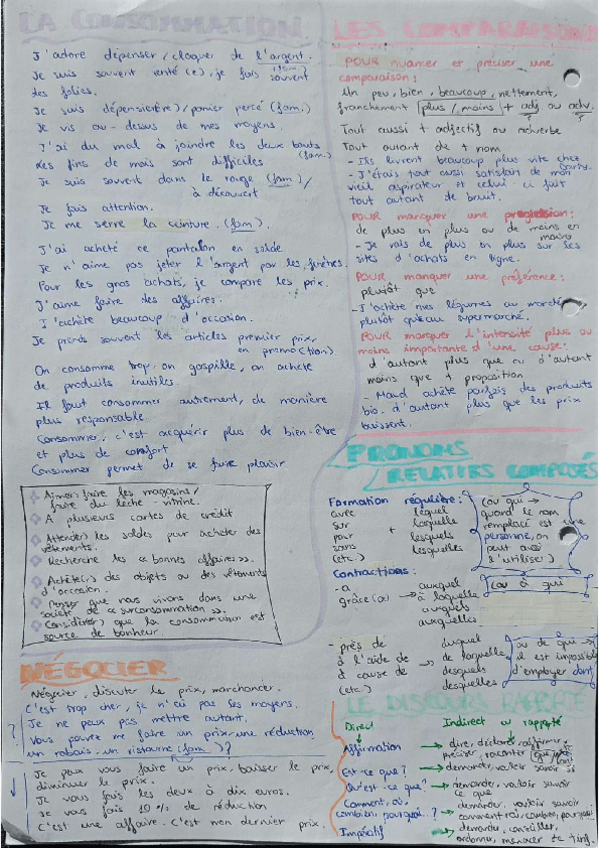 LA CONSOMMATION
J'adore dépenser / claquer de l'argent.
(fam.)
Je suis souvent tenté (e), je fais souvent
des folies.
Je suis dépensière) / panier percé (fam.)
Je vis au-dessus de mes moyens.
J'ai du mal à joindre les deux bouts
(fam.)
Les fins de mois sont difficiles
Je suis souvent dans le rouge (fam.) /
à découvert
Je fais attention.
Je me serre la ceinture. (fam).
J'ai acheté ce pantalon en solde
Je n'aime pas jeter l'argent par les fenêtres.
Pour les gros achats, je compare les prix.
J'aime faire des affaires.
J'achète beaucoup d'occasion.
Je prends souvent les articles premier prix,
en promo(ction)
On consomme trop, on gaspille, on achète
de produits inutiles.
Il faut consommer autrement, de manière
plus responsable.
Consommer, c'est acquérir plus de bien-être
et plus de confort
Consommer permet de se faire plaisir
Aimer faire les magasins /
faire du lèche-vitrine.
A plusieurs cartes de crédit
Attende) les soldes pour acheter des
vêtements.
Recherche les « bonnes affaires ».
Achète(r) des objets ou des vêtements
d'occasion.
Penser que nous vivons dans une
société de « surconsommation ».
Considère) que la consommation est
source de bonheur.
NÉGOCIER
Négocier, discuter le prix, marchander.
C'est trop cher, je n'ai pas les moyens.
Je ne peux pas mettre autant.
? Vous pouvez me faire un prix, une réduction
un rabais, un ristourne (fam.)?
Je peux vous faire un prix, baisser le prix,
diminuer le prix.
Je vous fais les deux à dix euros.
Je vous fais 10 % de réduction
C'est une affaire. C'est mon dernier prix.
LES COMPARAISONS
POUR nuancer et préciser une
comparaison:
Un peu, bien, beaucoup, nettement,
franchement [plus / moins] + adj. ou adv.
Tout aussi + adjectif ou adverbe
Tout autant de + nom
- Ils livrent beaucoup plus vite chez
Darty.
- J'étais tout aussi satisfait de mon
vieil aspirateur et celui-ci fait
tout autant de bruit.
POUR marquer une progression:
de plus en plus ou de moins en
moins
- Je vais de plus en plus sur les
sites d'achats en ligne.
POUR marquer une préférence:
plutôt que
- J'achète mes légumes au marché
plutôt qu'au supermarché.
POUR marquer l'intensité plus ou
moins importante d'une cause:
d'autant plus que ou d'autant
moins que + proposition
- Maud achète parfois des produits
bio, d'autant plus que les prix
baissent.
PRONOMS
RELATIFS COMPOSÉS
Formation régulière:
avec lequel
sur laquelle
pour + lesquels
sans lesquelles
(etc.)
(ou qui →
quand le nom
remplacé est une
personne, on
peut aussi
l'utiliser)
Contractions:
- à auxquel
grâce (au → à laquelle
auxquels
auxquelles
(ou à qui
- près de duquel
à l'aide de → de laquelle
à cause de desquels
(etc.) desquelles
ou de qui →
il est impossible
d'employer dont
LE DISCOURS RAPPORTÉ
Direct Indirect ou rapporté
Affirmation → dire, déclarer, affirmer,
préciser, raconter
Est-ce que? → demander, vouloir savoir si
Qu'est-ce que? → demander, vouloir savoir
ce que
Comment, où,
combien, pourquoi..? → demander, vouloir savoir
comment, où, combien, pourquoi
Impératif → demander, conseiller,
ordonner, menacer de + inf.